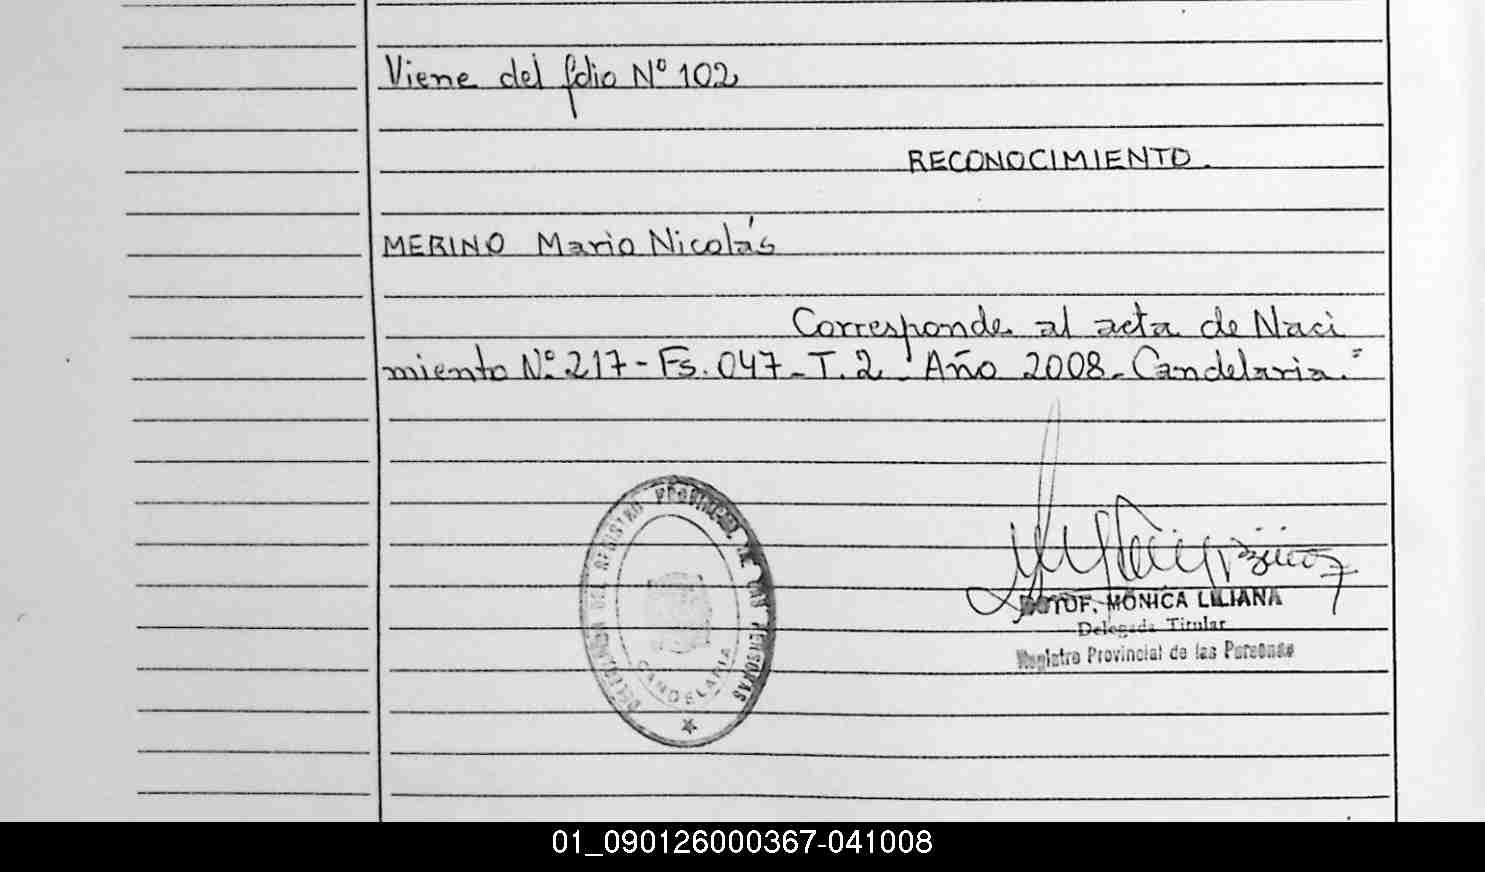 Viene del folio Nº 102
RECONOCIMIENTO.
MERINO Mario Nicolás
Corresponde al acta de Naci
miento Nº 217 - Fs. 047 - T. 2. Año 2008 - Candelaria.-
DELEGACION DEL REGISTRO PROVINCIAL DE LAS PERSONAS
CANDELARIA
MONICA LILIANA
Delegada Titular
Registro Provincial de las Personas
01_090126000367-041008